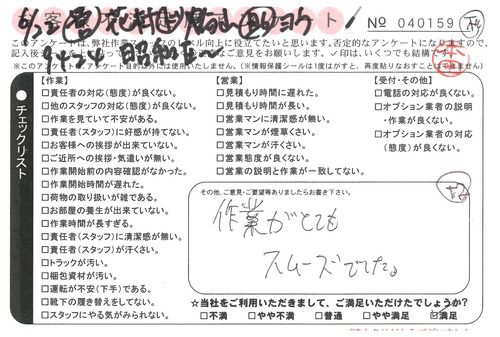 No 040159
このアンケートは、弊社作業スタッフのレベル向上に役立てたいと思います。否定的なアンケートになりますので、
※このアンケートは、作業目的以外には使用いたしません。(※情報保護シールは1度はがすと、再度貼りなおすことはできません)
チェックリスト
【作業】
□責任者の対応(態度)が良くない。
□他のスタッフの対応(態度)が良くない。
□作業を見ていて不安がある。
□責任者(スタッフ)に好感が持てない。
□お客様への挨拶が出来ていない。
□ご近所への挨拶・気遣いが無い。
□作業開始前の内容確認がなかった。
□作業開始時間が遅れた。
□荷物の取り扱いが雑である。
□お部屋の養生が出来ていない。
□作業時間が長すぎる。
□責任者(スタッフ)に清潔感が無い。
□責任者(スタッフ)が汗くさい。
□トラックが汚い。
□梱包資材が汚い。
□運転が不安(下手)である。
□靴下の履き替えをしてない。
□スタッフにやる気がみられない。
【営業】
□見積もり時間に遅れた。
□見積もり時間が長い。
□営業マンに清潔感が無い。
□営業マンが煙草くさい。
□営業マンが汗くさい。
□営業態度が良くない。
□営業の説明と作業が一致してない。
【受付・その他】
□電話の対応が良くない。
□オプション業者の説明
・作業が良くない。
□オプション業者の対応
(態度)が良くない。
その他、ご意見・ご要望等ありましたらお書き下さい。
作業がとても
スムーズでした。
☆当社をご利用いただきまして、ご満足いただけたでしょうか?
□不満 □やや不満 □普通 □やや満足 ☑満足